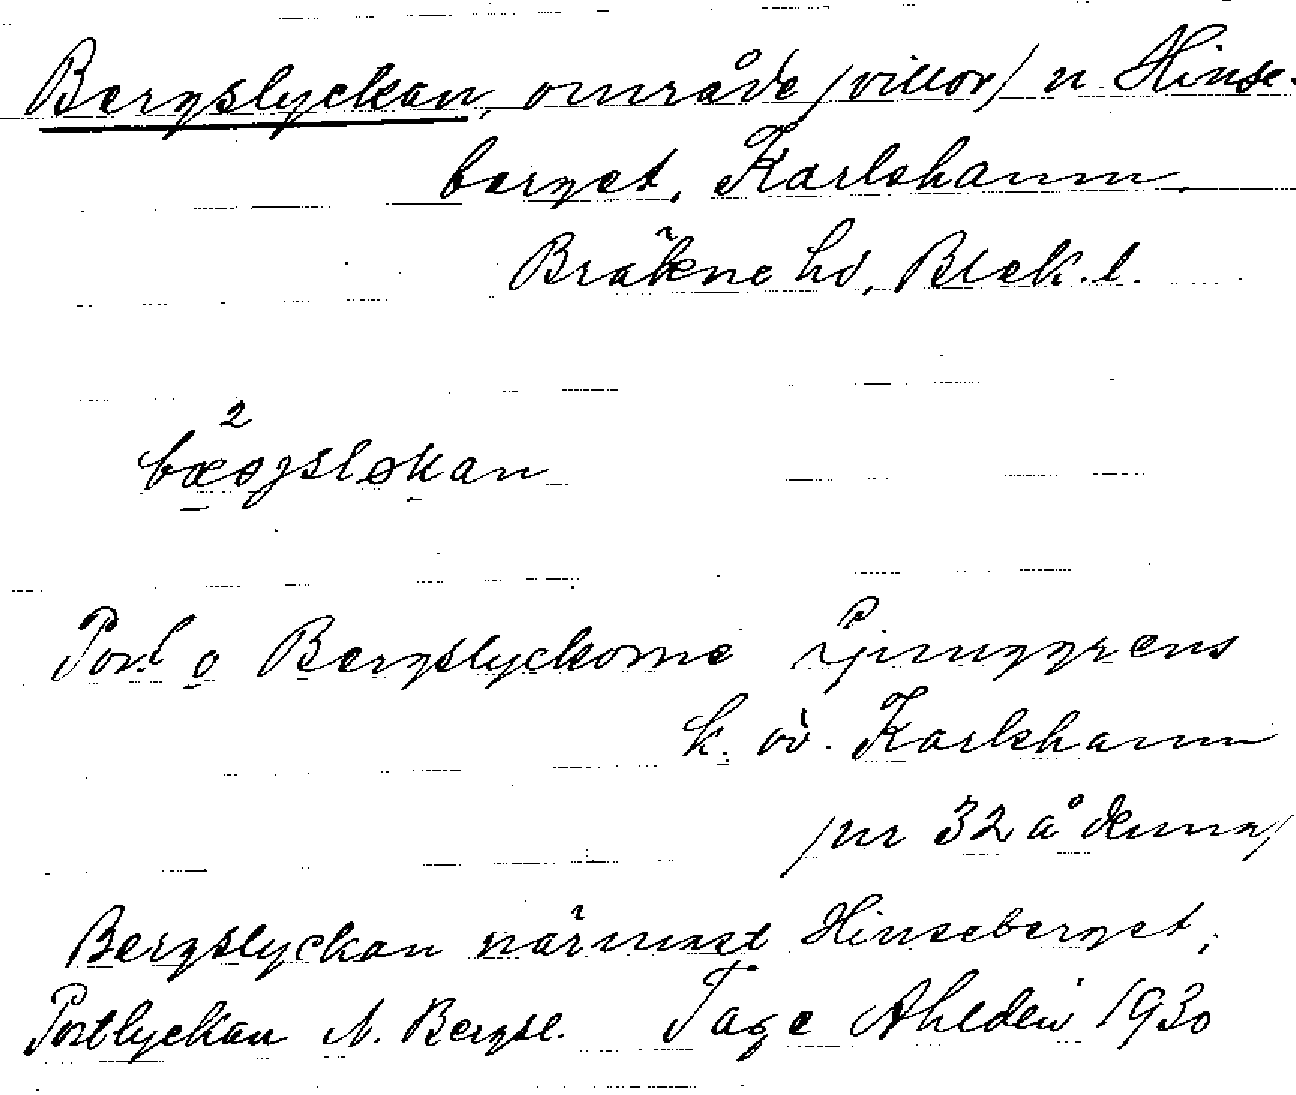 Bergslyckan, område /villor/ n Hinse-
berget, Karlshamn.
Bräkne hd, Blek. l.
2
bæǥsløkan
Port o Bergslyckorne Ljunggrens
k. ö. Karlshamn
/nr 32 å denna/
Bergslyckan närmast Hinseberget,
Portlyckan N. Bergsl. Tage Ahldén 1930